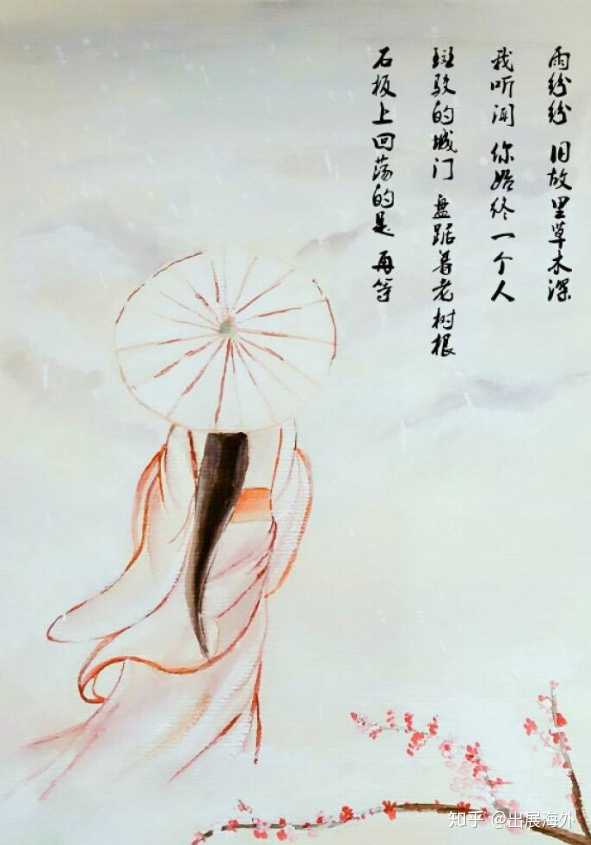 雨纷纷 旧故里草木深
我听闻 你始终一个人
斑驳的城门 盘踞着老树根
石板上回荡的是 再等
知乎 @出展海外